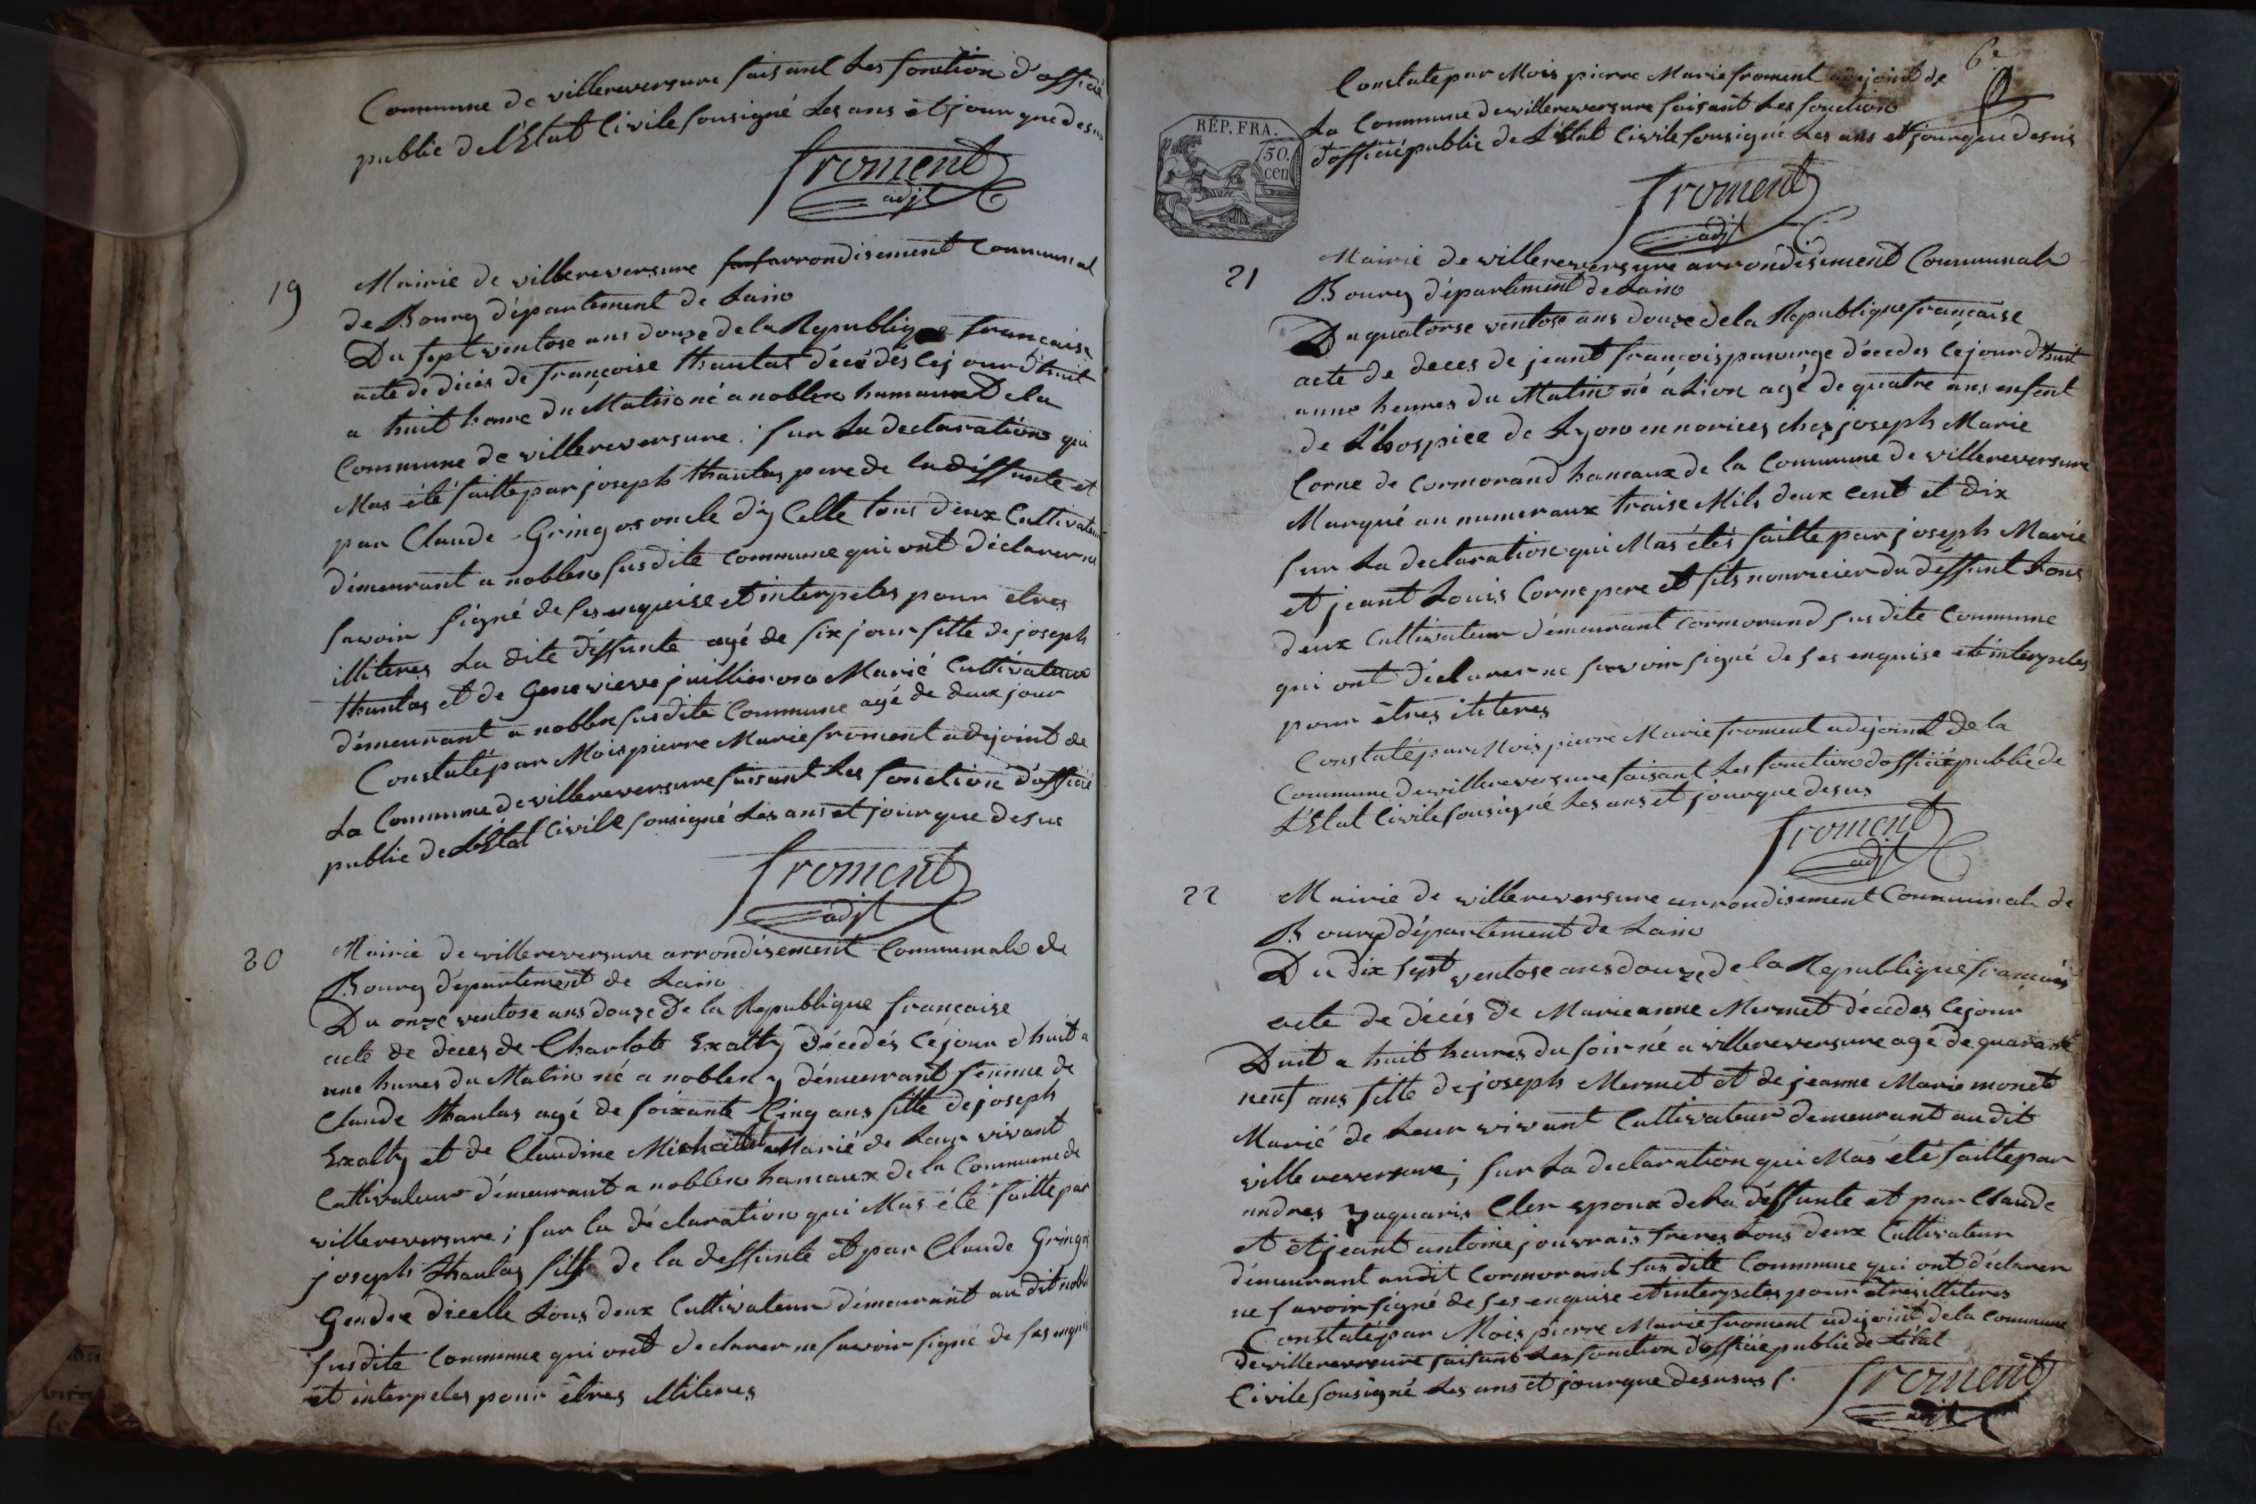 Commune de villereversure faisant Les fonction d'officié
public de l'Etat Civile sousigné Les ans et jour que desus
froment
adjt
19
Mairie de villereversure arrondisement Communal
de Bourg département de Lain
Du sept ventose ans douze de la Republique française
acte de décés de françoise thaulas décédés Cejourd'huit
a huit heure du Matin né a noblen hameaux De la
Commune de villereversure ; sur La declaration qui
Mas été faitte par joseph thaulas pere de la déffunte et
par Claude Gringos oncle d'y Celle tous deux Cultivateur
démeurant a noblen susdite commune qui ont déclarer ne
savoir signé de ses enquise et interpeles pour etres
illiteres La dite déffunte agé de six jour fille de joseph
thaulas et de Genevieve juilleron Marié Cultivateur
démeurant a noblen susdite Commune agé de deux jour
Constaté par Moi pierre Marie froment adejoint de
La Commune de villereversure faisant Les fonction d'officié
public de L'Etat Civile sousigné Les ans et jour que desus
froment
adjt
20
Mairie de villereversure arrondisement Communale de
Bourg département de Lain
Du onze ventose ans douze de la Republique française
acte de deces de Charlote Exalty décédés Céjour d'huit a
une hures du Matin né a noblen y démeurant femme de
Claude thaulas agé de soixante Cinq ans fille de joseph
Exalty et de Claudine Marié de Leur vivant
Cultivateur démeurant a noblen hameaux de la Commune de
villereversure ; sur la déclaration qui Mas été faitte par
joseph thaulas fils de la deffunte et par Claude Gringos
Gendre dicelle tous deux Cultivateur démeurant au dit noblen
susdite Commune qui ont declarer ne savoir signé de ses enquise
et interpeles pour êtres illiteres
6e
Constate par Mois pierre Marie froment adejoint de
La Commune de villereversure faisant Les fonction
d'officié public de L'état Civile sousigné Les ans et jour que desus
REP. FRA.
50.
cen
froment
adjt
21
Mairie de villereversure arrondisement Communale
Bourg département de Lain
Du quatorse ventose ans douze de la Republique française
acte de deces de jeant françois panurge décedes Cejourd'huit
a une heures du Matin né á Lion agé de quatre ans enfent
de L'hospice de Lyon en norices chez joseph Marie
Corne de Cormorand hameaux de la Commune de villereversure
Marqué au numeraux traise Mils deux Cent et dix
sur La declaration qui Mas étés faitte par joseph Marie
et jeant Louis Corne pere et fils nouricier du déffunt tous
deux Cultivateur démeurant Cormorand susdite Commune
qui ont déclarer ne savoir signé de ses enquise et interpeles
pour êtres iliteres
Constaté par Mois pierre Marie froment adejoint de la
Commune de villereversure faisant Les fonction d'officié public de
L'Etat Civile sousigné Les ans et jour que desus
froment
adjt
22
Mairie de villereversure arrondisement Communale de
Bourg département de Lain
Du dix sept ventose ans douze de la Republique française
acte de décés de Marie anne Mermet décédes Cejour
Duit a huit heures du soir né a villereversure agé de quarante
neuf ans fille de joseph Mermet et de jeanne Marie monet
Marié de Leur vivant Cultivateur demeurant au dit
villereversure ; sur La declaration qui Mas été faitte par
andres Cler epoux de La déffunte et par Claude
et et jeant antoine jouvrais freres tous deux Cultivateur
démeurant audit Cormorand susdite Commune qui ont déclarer
ne savoir signé de ses enquise et interpeles pour êtres illiteres
Constaté par Mois pierre Marie froment adejoint de la Commune
de villereversure faisant Les fonction d'officié public de Létat
Civile sousigné Les ans et jour que desusus
froment
adjt